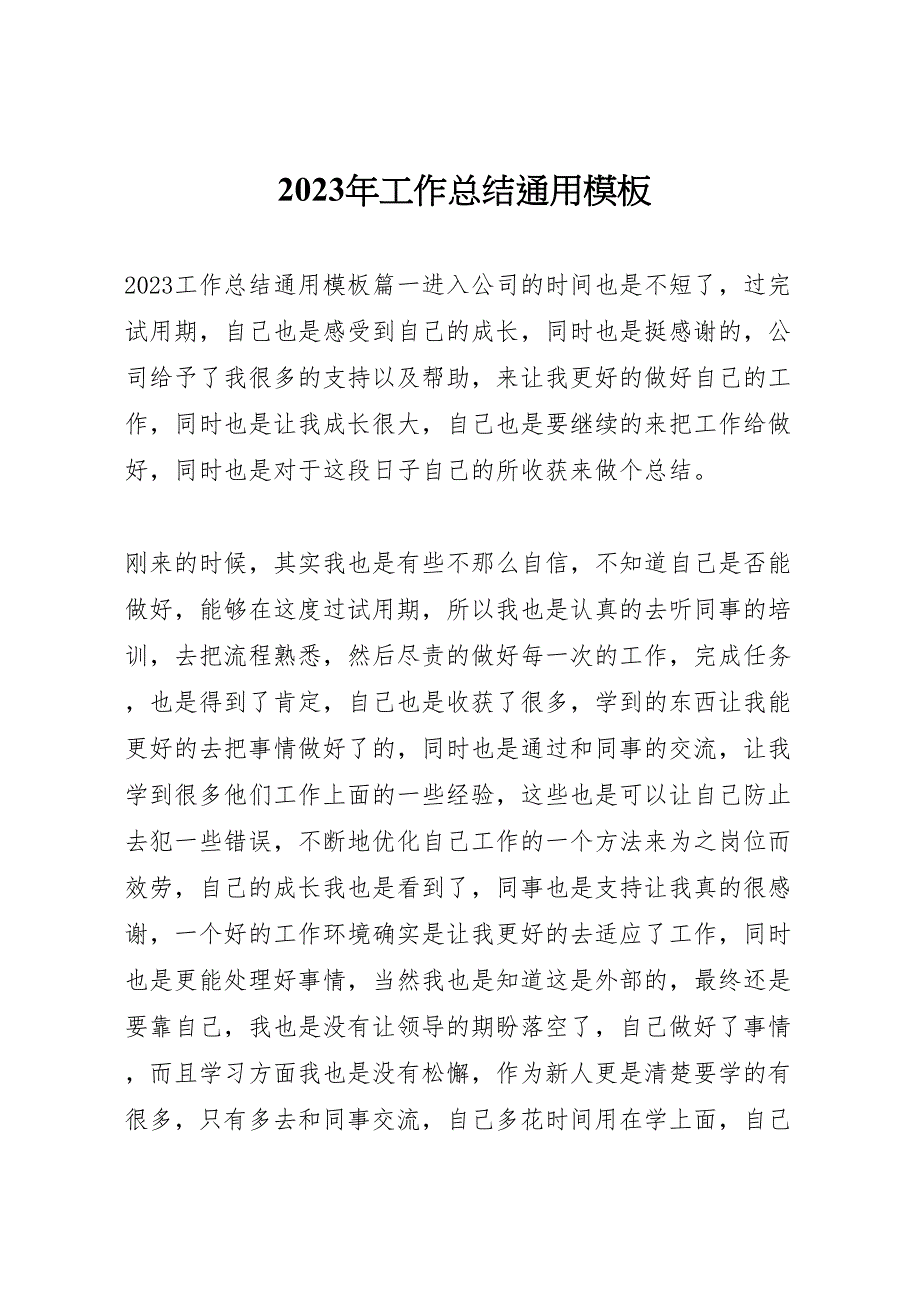 2023年工作总结通用模板
2023工作总结通用模板篇一进入公司的时间也是不短了，过完
试用期，自己也是感受到自己的成长，同时也是挺感谢的，公
司给予了我很多的支持以及帮助，来让我更好的做好自己的工
作，同时也是让我成长很大，自己也是要继续的来把工作给做
好，同时也是对于这段日子自己的所收获来做个总结。
刚来的时候，其实我也是有些不那么自信，不知道自己是否能
做好，能够在这度过试用期，所以我也是认真的去听同事的培
训，去把流程熟悉，然后尽责的做好每一次的工作，完成任务
，也是得到了肯定，自己也是收获了很多，学到的东西让我能
更好的去把事情做好了的，同时也是通过和同事的交流，让我
学到很多他们工作上面的一些经验，这些也是可以让自己防止
去犯一些错误，不断地优化自己工作的一个方法来为之岗位而
效劳，自己的成长我也是看到了，同事也是支持让我真的很感
谢，一个好的工作环境确实是让我更好的去适应了工作，同时
也是更能处理好事情，当然我也是知道这是外部的，最终还是
要靠自己，我也是没有让领导的期盼落空了，自己做好了事情
，而且学习方面我也是没有松懈，作为新人更是清楚要学的有
很多，只有多去和同事交流，自己多花时间用在学上面，自己